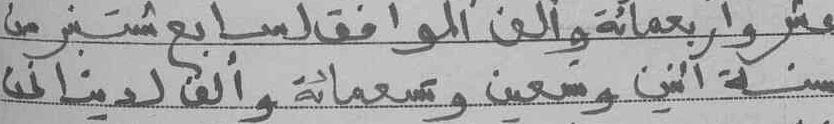 عشر وأربعمائة وألف الموافق لسابع شتنبر من
سنة اثنين وتسعين وتسعمائة وألف لدينا نحن